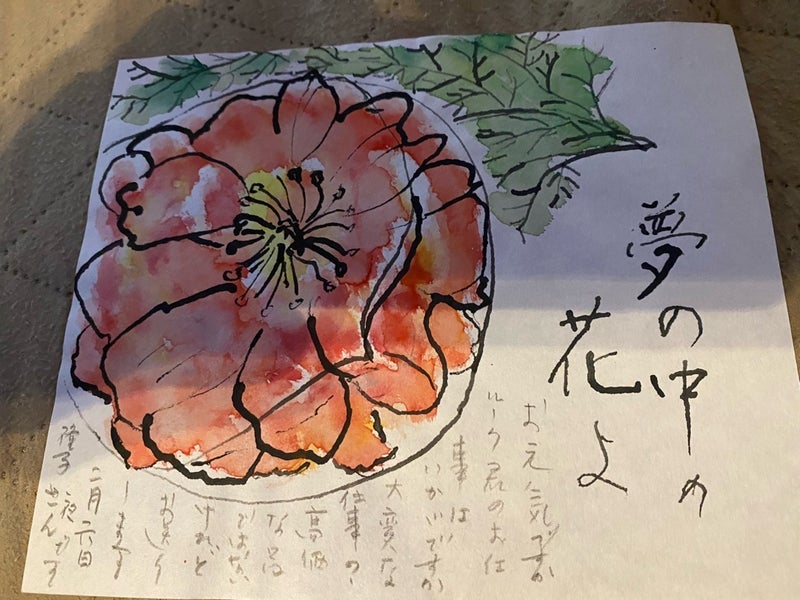 夢の中の
花よ
お元気ですか
ルーク君のお仕
事は
いかがですか
大変な
仕事の
高価
な品
ではない
けれど
おおくり
します
二月六日
夜